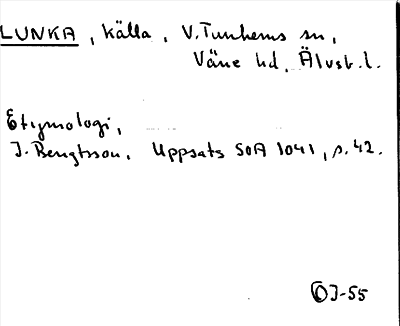 LUNKA, källa, V. Tunhems sn,
Väne hd, Älvsb. l.
Etymologi,
J. Bengtsson, Uppsats SOA 1041, s. 42.
OJ-55